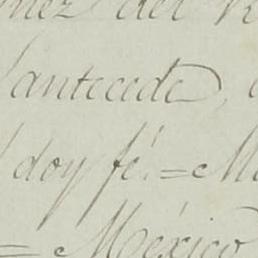 del
antecede,
doy fé.=
= México